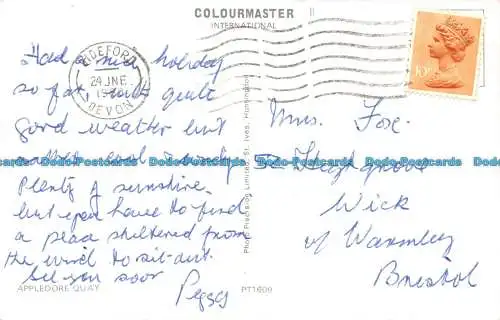 COLOURMASTER
INTERNATIONAL
BIDEFORD
24 JNE
DEVON
10P
Had a nice holiday
so far with quite
good weather but
rather cool & windy
Plenty of sunshine
but have to find
a place sheltered from
the wind to sit out.
See you soon
Peggy
Mrs. Fox.
52
Wick
Nr Warmley
Bristol
Dodo-Postcards Dodo-Postcards Dodo-Postcards Dodo-Postcards Dodo-Postcards Dodo-Postcards
Photo Precision Limited, St. Ives, Huntingdon
APPLEDORE QUAY
PT1609